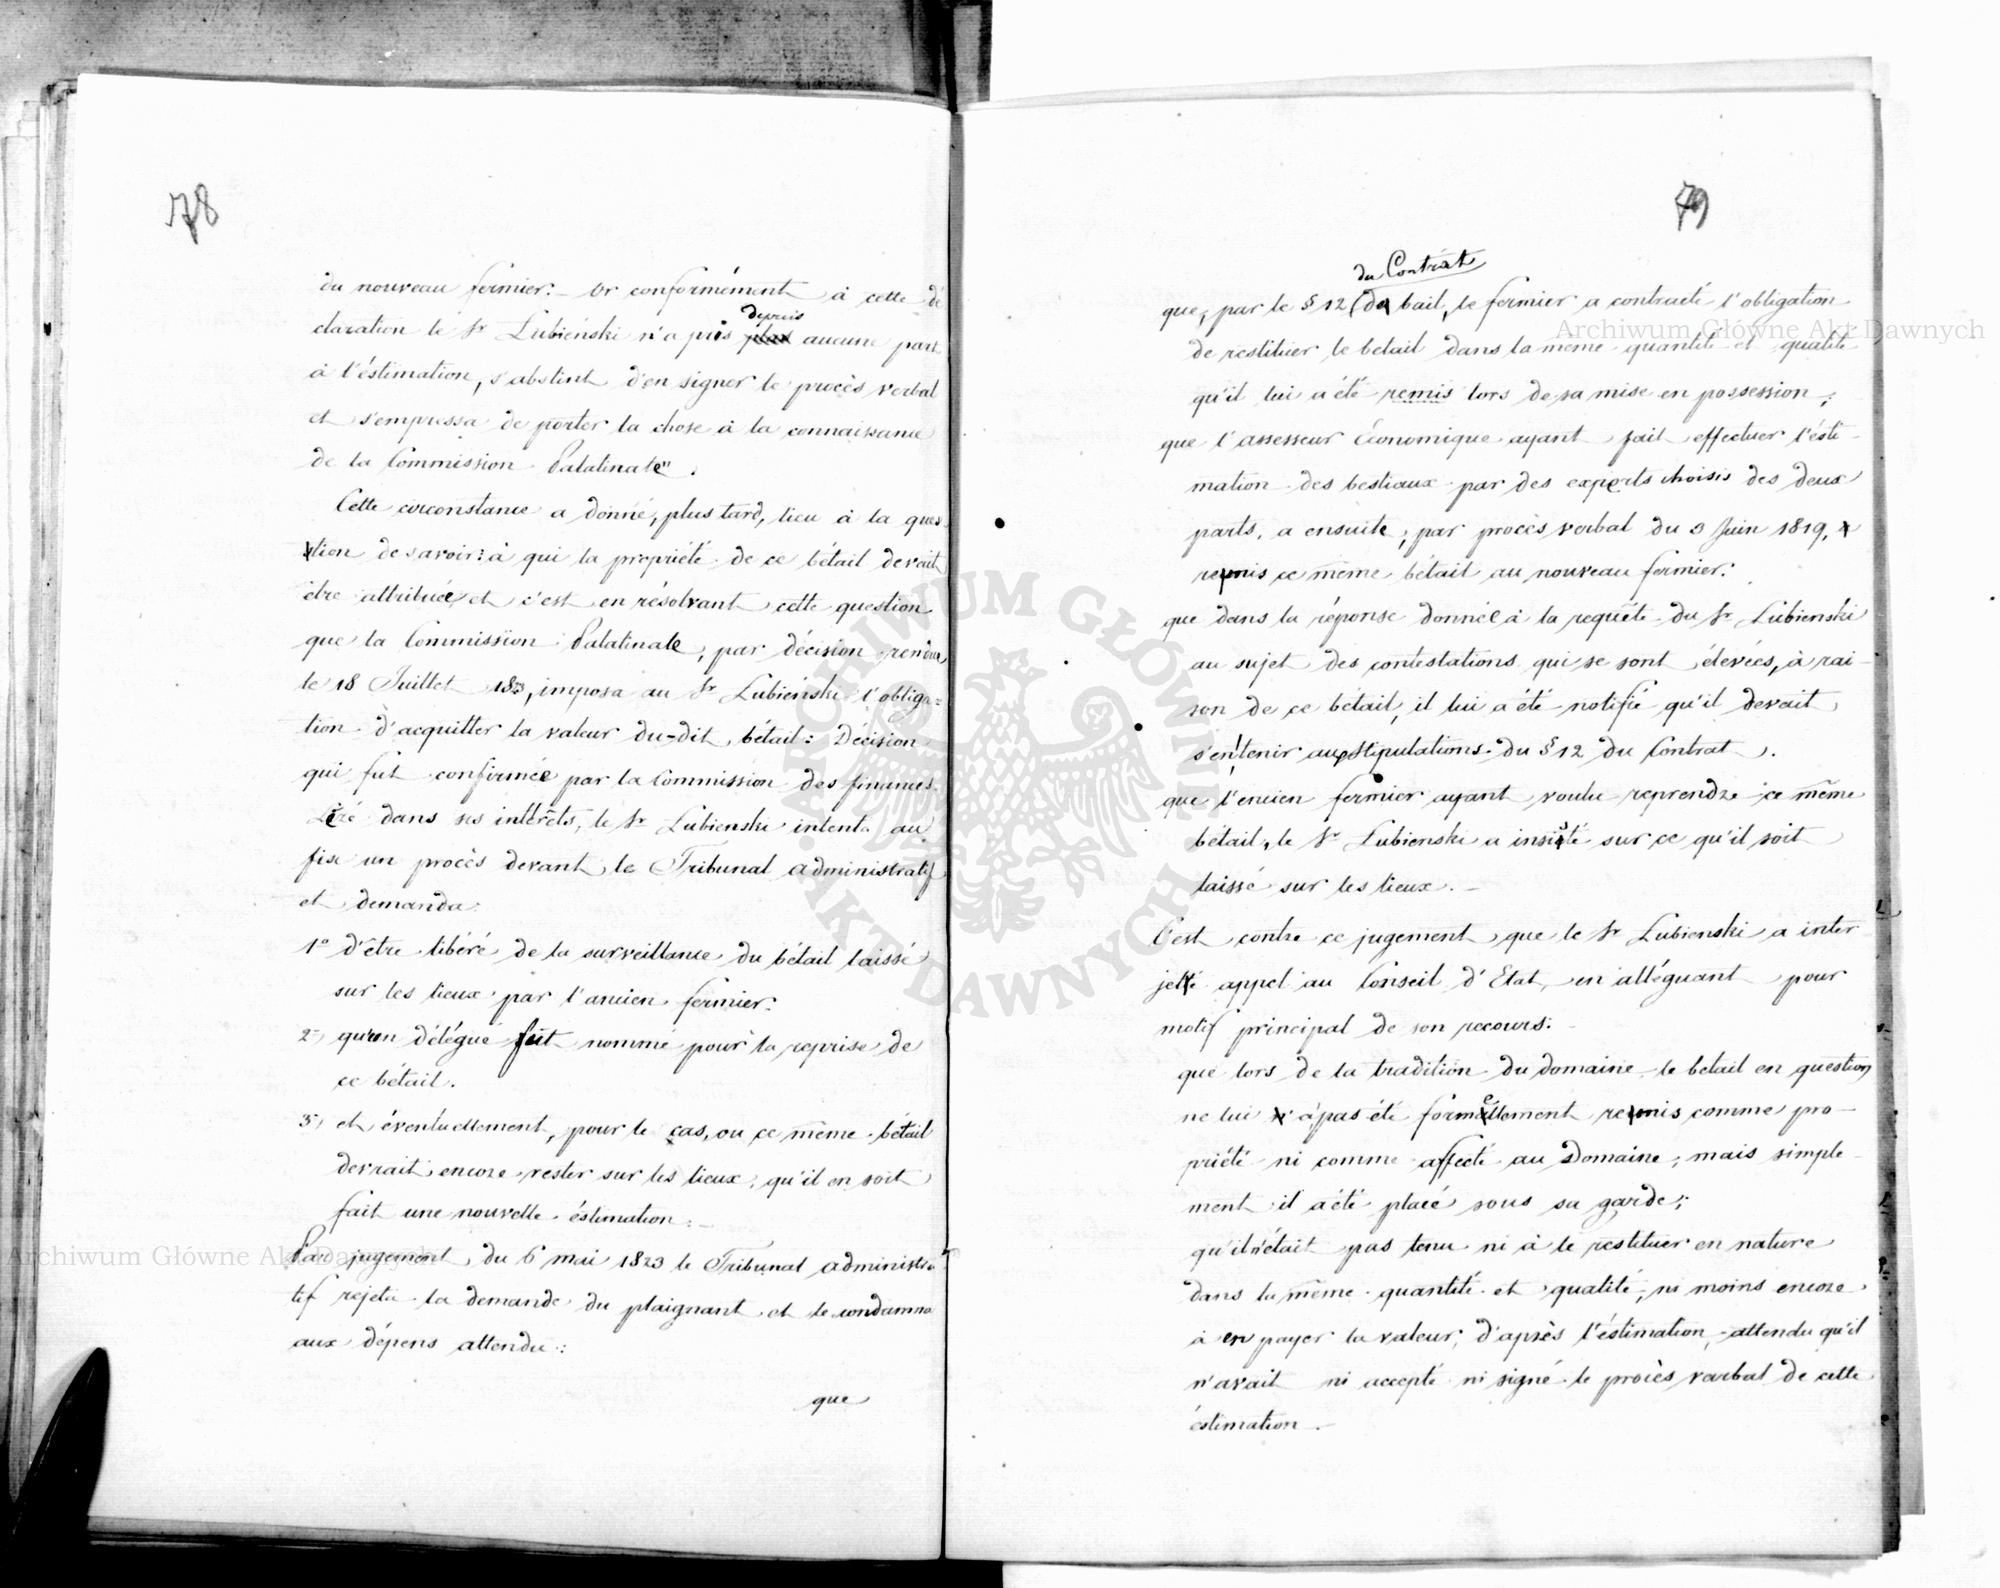 78
du nouveau fermier. Or conformément à cette dé
claration le Sr Lubieński n'a pris depuis aucune part
à l'éstimation, s'abstint d'en signer le procès verbal
et s'empressa de porter la chose à la connaissance
de la Commission Palatinale".
Cette circonstance a donné, plus tard, lieu à la ques
tion de savoir: à qui la propriété de ce bétail devait
être attribuée et c'est en résolvant cette question
que la Commission Palatinale, par décision rendue
le 18 Juillet, imposa au Sr Lubieński l'obliga=
tion d'acquitter la valeur du-dit bétail: Décision
qui fut confirmée par la Commission des finances.
Lézé dans ses intérêts, le Sr Lubienski intenta au
fisc un procès devant le Tribunal administratif
et demanda:
1º d'être libéré de la surveillance du bétail laissé
sur les lieux par l'ancien fermier.
2º, qu'un délégué fût nommé pour la reprise de
ce bétail.
3º, et éventuellement, pour le cas, ou ce même bétail
devrait encore rester sur les lieux, qu'il en soit
fait une nouvelle éstimation.
Par jugement du 6 mai 1823 le Tribunal administra
tif rejeta la demande du plaignant et le condamna
aux dépens attendu:
que
79
du Contrat
que, par le § 12 (de bail, le fermier a contracté l'obligation
de restituer le betail dans la même quantité et qualité
qu'il lui a été remis lors de sa mise en possession;
que l'assesseur Économique ayant fait effectuer l'ésti-
mation des bestiaux par des experts choisis des deux
parts, a ensuite, par procès verbal du 3 Juin 1819,
remis ce même bétail au nouveau fermier:
que dans la réponse donnée à la requête du Sr Lubienski
au sujet des contestations qui se sont élevées, à rai-
son de ce bétail, il lui a été notifié qu'il devait
s'en tenir aux stipulations du § 12 du Contrat.
que l'ancien fermier ayant voulu reprendre ce même
bétail, le Sr Lubienski a insisté sur ce qu'il soit
laissé sur les lieux.
C'est contre ce jugement que le Sr Lubienski a inter
jetté appel au Conseil d'Etat, en alléguant pour
motif principal de son recours:
que lors de la tradition du domaine le betail en question
ne lui a pas été formellement remis comme pro-
priété ni comme affecté au Domaine; mais simple-
ment il a été placé sous sa garde;
qu'il n'était pas tenu ni à le restituer en nature
dans la même quantité et qualité, ni moins encore
à en payer la valeur, d'après l'éstimation, attendu qu'il
n'avait ni accepté ni signé le procès verbal de cette
éstimation.
Archiwum Główne Akt Dawnych
Archiwum Główne Akt Dawnych
ARCHIWUM GŁÓWNE AKT DAWNYCH